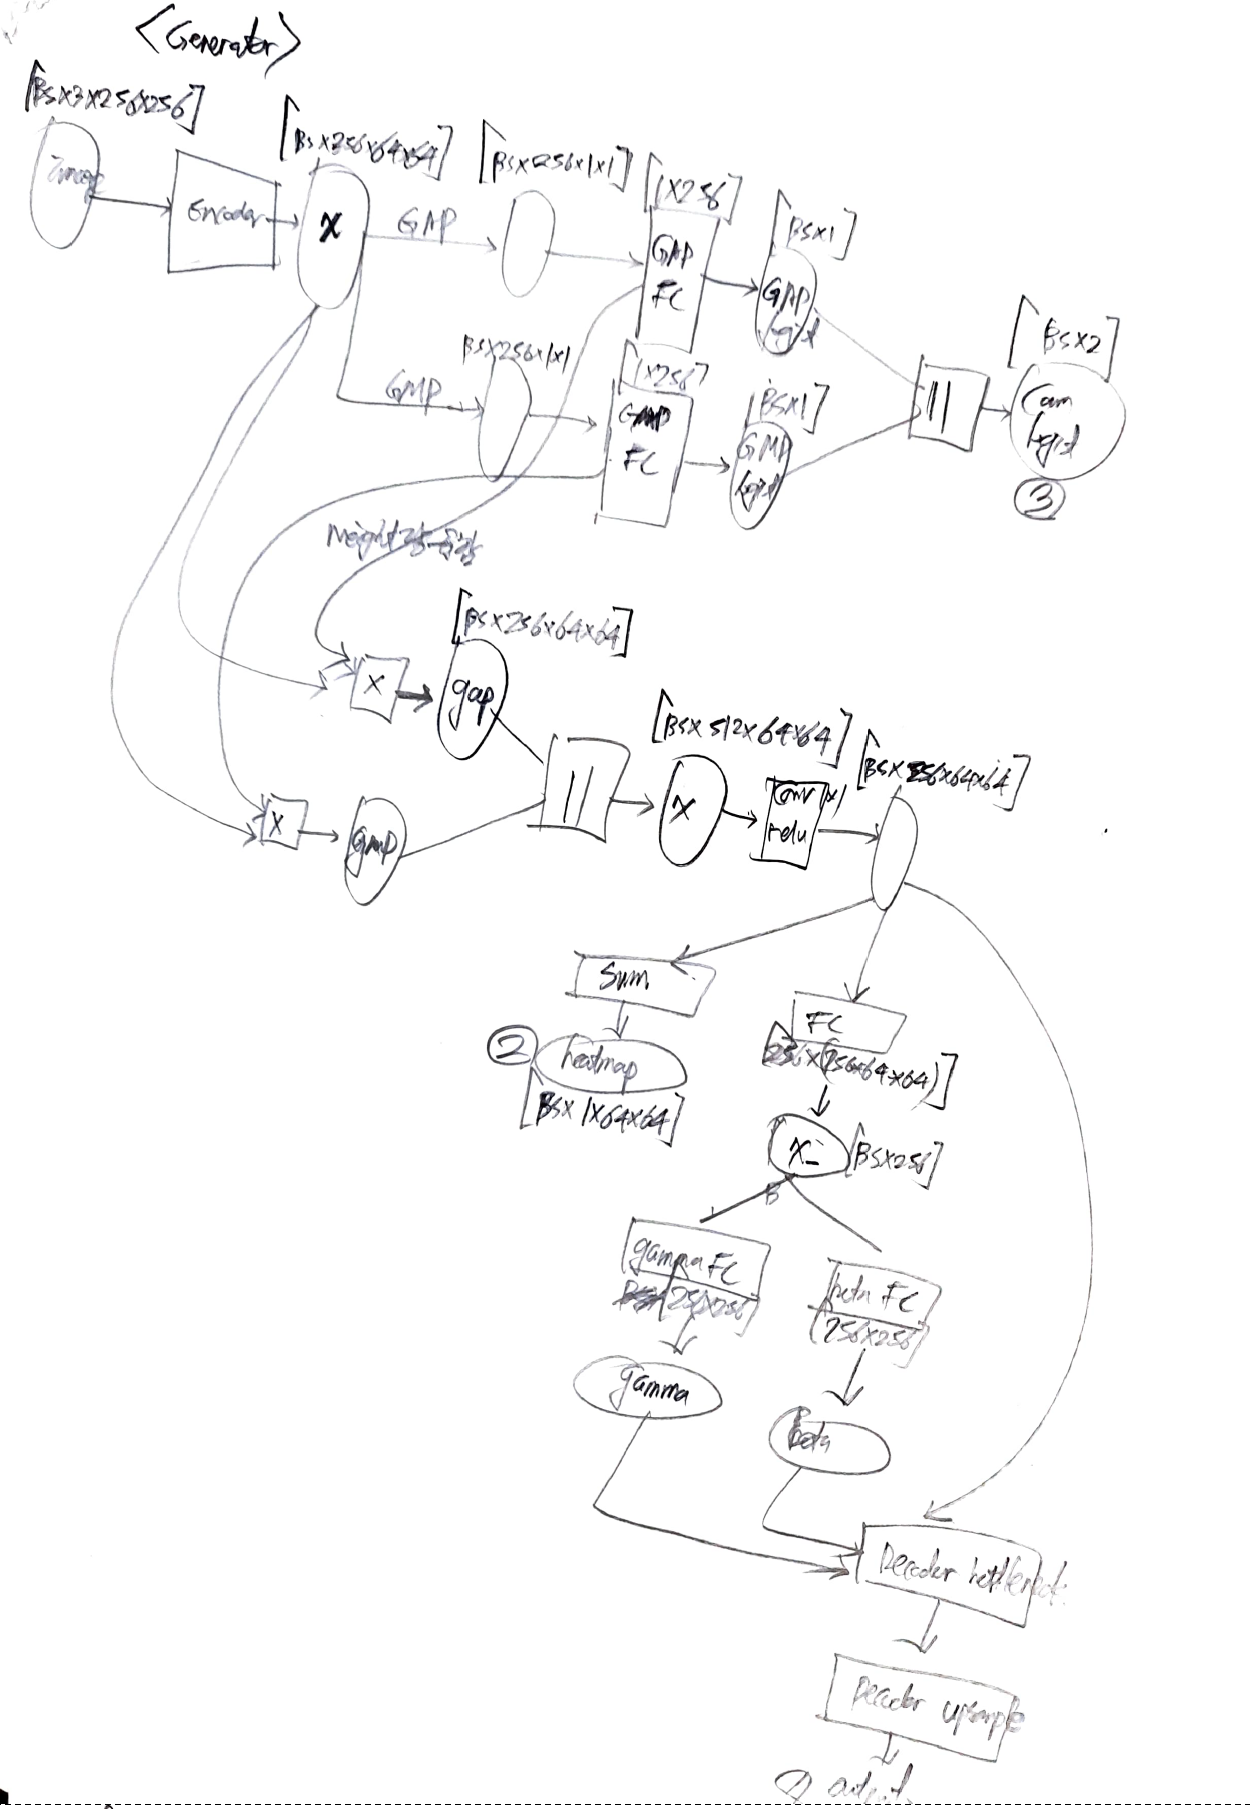 <Generator>
[BSX3X256X256]
Image
Encoder
[BSX256X64X64]
X
GAP
[BSX256X1X1]
[1X256]
GAP
FC
[BSX1]
GAP
logit
GMP
BSX256X1X1
[1X256]
GMP
FC
[BSX1]
GMP
logit
||
[BSX2]
Cam
logit
③
X
[BSX256X64X64]
gap
X
gmp
||
[BSX512X64X64]
X
Conv 1x1
relu
[BSX256X64X64]
Sum
②
heatmap
[BSX1X64X64]
FC
[256X(256X64X64)]
X_
[BSX256]
gamma FC
[256X256]
beta FC
[256X256]
gamma
Beta
Decoder
Decoder upsample
① output